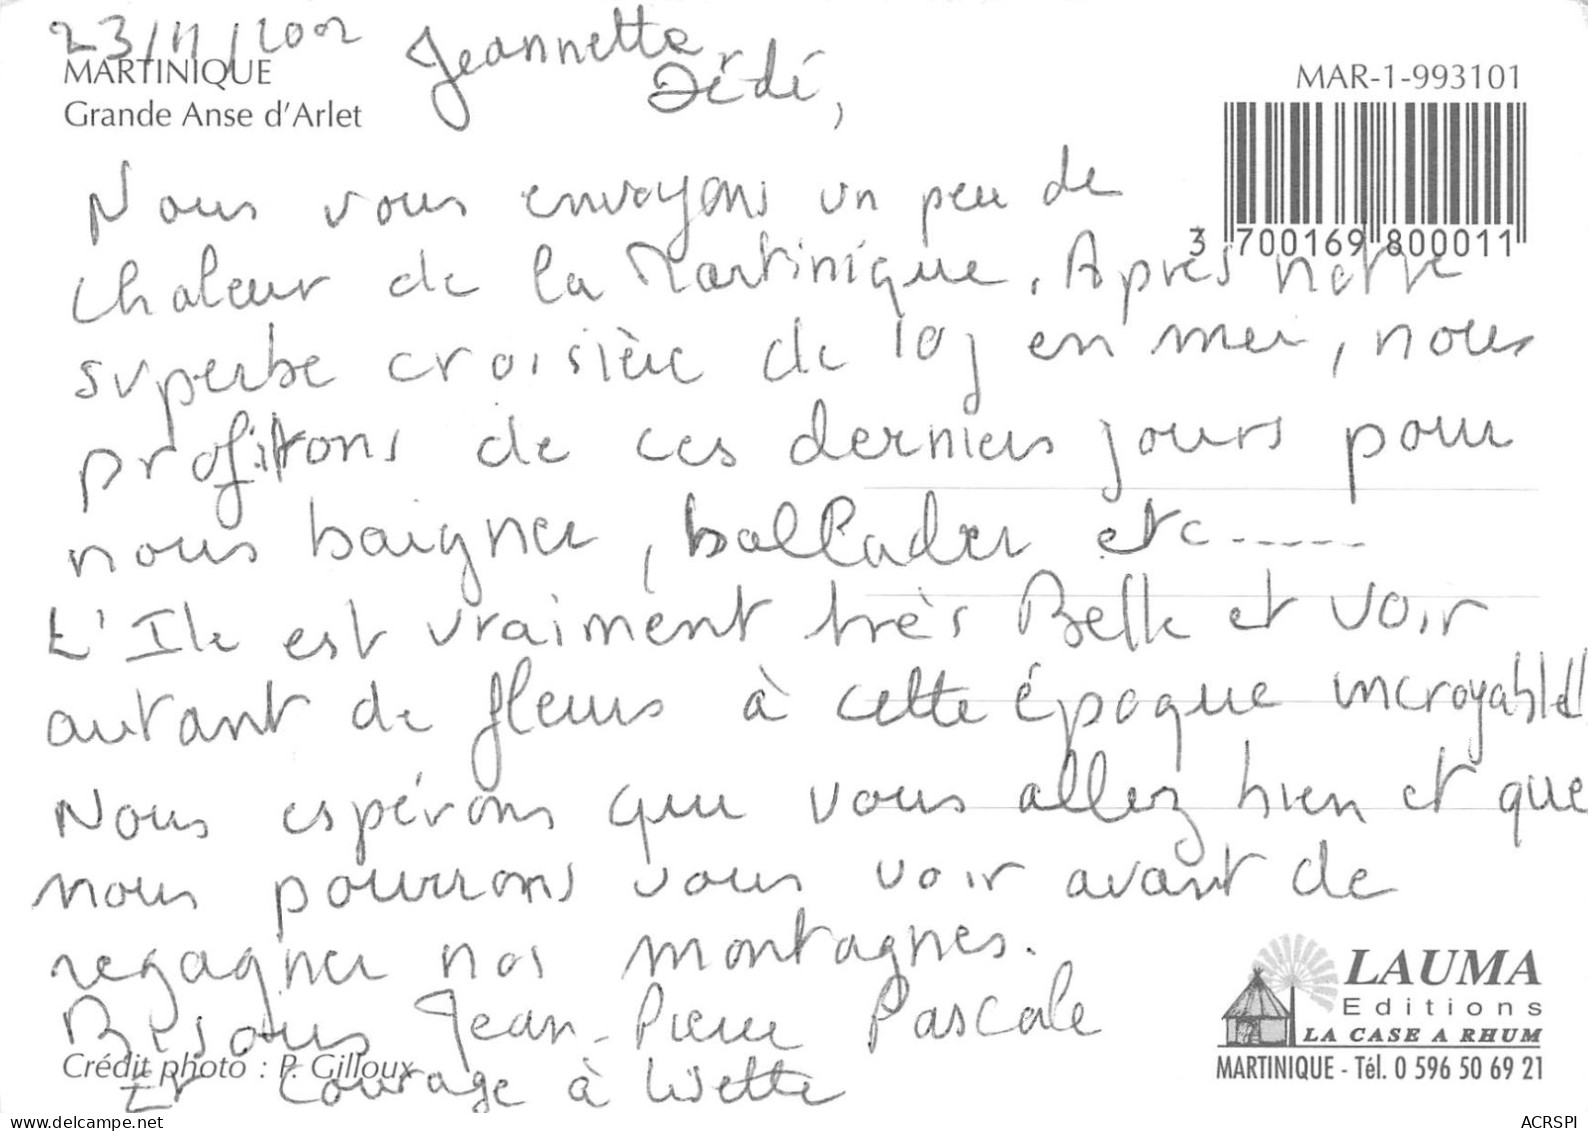 23/11/2002 Jeannette
Dédé,
MARTINIQUE
Grande Anse d'Arlet
MAR-1-993101
3 700169 800011
Nous vous envoyons un peu de
chaleur de la Martinique. Après notre
superbe croisière de 10j en mer, nous
profitons de ces derniers jours pour
nous baigner, ballader etc......
L'Ile est vraiment très Belle et voir
autant de fleurs à cette époque incroyable!!
Nous espérons que vous allez bien et que
nous pourrons vous voir avant de
regagner nos montagnes.
Bisous Jean-Pierre Pascale
Et courage à Lisette
Crédit photo : P. Gilloux
LAUMA
Editions
LA CASE A RHUM
MARTINIQUE - Tél. 0 596 50 69 21
delcampe.net
ACRSPI